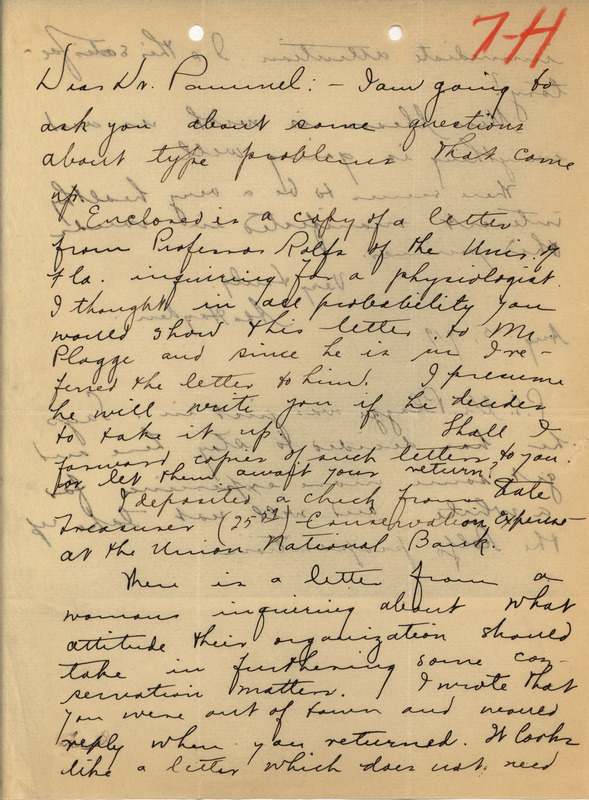 7-H
Dear Dr. Pammel: - I am going to
ask you about some questions
about type problems that come
up.
Enclosed is a copy of a letter
from Professor Rolfs of the Univ. of
Fla. inquiring for a physiologist.
I thought in all probability you
would show this letter to Mr.
Plagge and since he is in I re-
ferred the letter to him. I presume
he will write you if he decides
to take it up. Shall I
forward copies of such letters to you
or let them await your return?
I deposited a check from State
Treasurer (25 21) - Conservation Expense -
at the Union National Bank.
There is a letter from a
woman inquiring about what
attitude their organization should
take in furthering some con-
servation matters. I wrote that
you were out of town and would
reply when you returned. It looks
like a letter which does not need